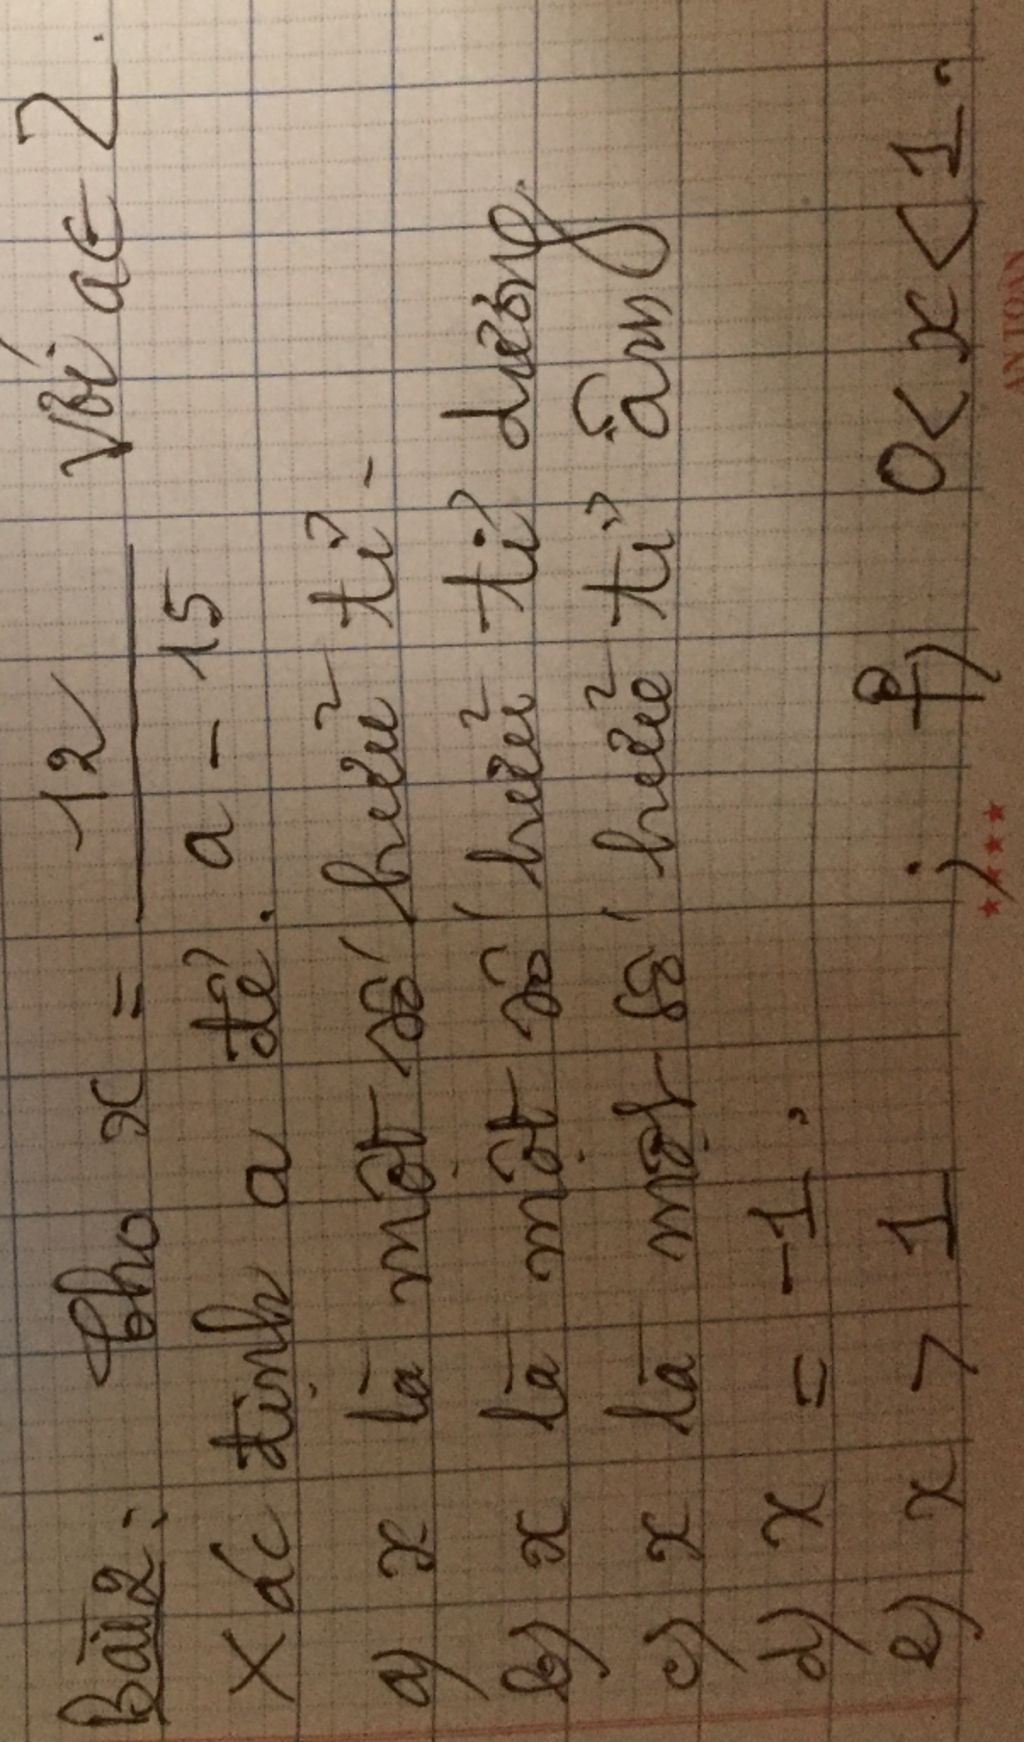 Bài 2: Cho x = 12 / a - 15 Với a ∈ Z.
Xác định a để.
a) x là một số hữu tỉ.
b) x là một số hữu tỉ dương.
c) x là một số hữu tỉ âm
d) x = -1,
e) x > 1 ; f) 0 < x < 1.
AN TOÀN